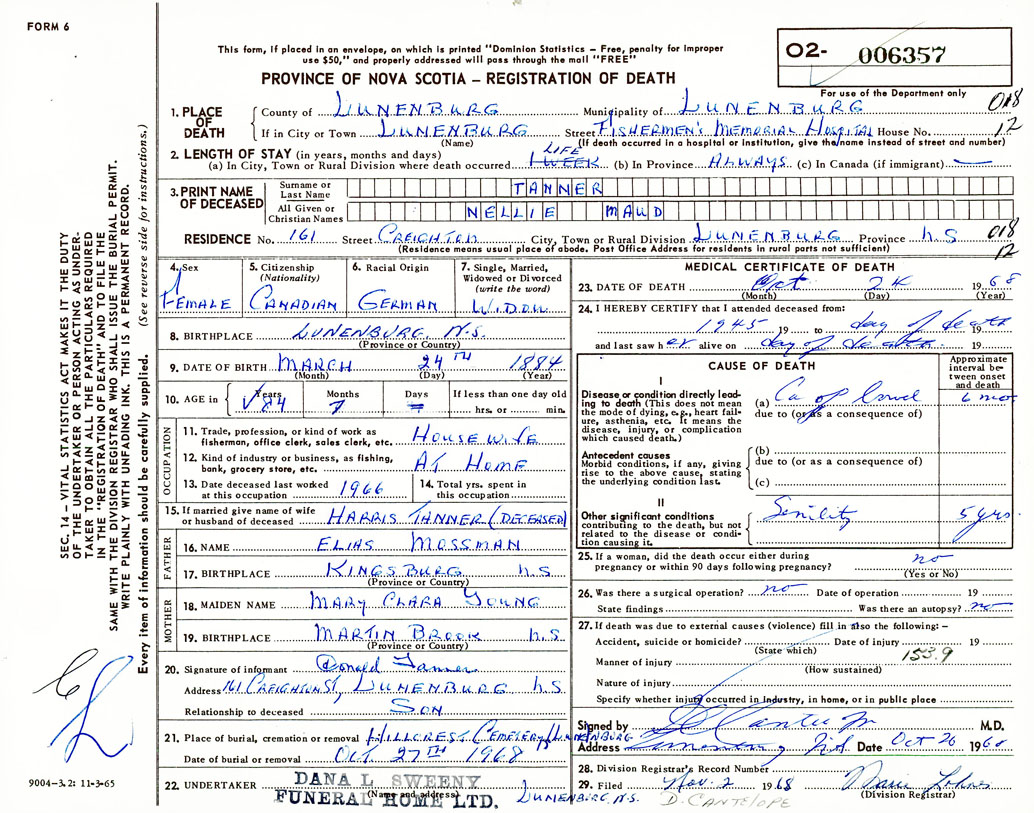 FORM 6
This form, if placed in an envelope, on which is printed "Dominion Statistics – Free, penalty for improper
use $50," and properly addressed will pass through the mail "FREE"
PROVINCE OF NOVA SCOTIA – REGISTRATION OF DEATH
O2- 006357
For use of the Department only
018
12
1. PLACE OF DEATH
County of LUNENBURG Municipality of LUNENBURG
If in City or Town LUNENBURG Street FISHERMEN'S MEMORIAL HOSPITAL House No.
(Name) (If death occurred in a hospital or institution, give the name instead of street and number)
2. LENGTH OF STAY (in years, months and days)
LIFE
(a) In City, Town or Rural Division where death occurred 1 WEEK (b) In Province ALWAYS (c) In Canada (if immigrant) —
3. PRINT NAME OF DECEASED
Surname or Last Name TANNER
All Given or Christian Names NELLIE MAUD
RESIDENCE No. 161 Street CREIGHTON City, Town or Rural Division LUNENBURG Province N.S
(Residence means usual place of abode. Post Office Address for residents in rural parts not sufficient)
018
12
4. Sex FEMALE
5. Citizenship (Nationality) CANADIAN
6. Racial Origin GERMAN
7. Single, Married, Widowed or Divorced (write the word) WIDOW
8. BIRTHPLACE LUNENBURG, N.S.
(Province or Country)
9. DATE OF BIRTH MARCH 24TH 1884
(Month) (Day) (Year)
10. AGE in Years 84 Months 7 Days – If less than one day old hrs. or min.
OCCUPATION
11. Trade, profession, or kind of work as fisherman, office clerk, sales clerk, etc. HOUSEWIFE
12. Kind of industry or business, as fishing, bank, grocery store, etc. AT HOME
13. Date deceased last worked at this occupation 1966
14. Total yrs. spent in this occupation
15. If married give name of wife or husband of deceased HARRIS TANNER (DECEASED)
FATHER
16. NAME ELIAS MOSSMAN
17. BIRTHPLACE KINGSBURG N.S
(Province or Country)
MOTHER
18. MAIDEN NAME MARY CLARA YOUNG
19. BIRTHPLACE MARTIN BROOK N.S
(Province or Country)
20. Signature of informant Donald Tanner
Address 161 CREIGHTON ST, LUNENBURG N.S
Relationship to deceased SON
21. Place of burial, cremation or removal HILLCREST CEMETERY, LUNENBURG
Date of burial or removal OCT. 27TH 1968
22. UNDERTAKER DANA L. SWEENY
FUNERAL HOME LTD. LUNENBURG, N.S.
(Name and address)
MEDICAL CERTIFICATE OF DEATH
23. DATE OF DEATH Oct 24 1968
(Month) (Day) (Year)
24. I HEREBY CERTIFY that I attended deceased from:
1945 19 to day of death 19
and last saw her alive on day of death 19
CAUSE OF DEATH
Approximate interval between onset and death
I
Disease or condition directly leading to death (This does not mean the mode of dying, e.g., heart failure, asthenia, etc. It means the disease, injury, or complication which caused death.)
(a) Ca of 6 mos
due to (or as a consequence of)
Antecedent causes
Morbid conditions, if any, giving rise to the above cause, stating the underlying condition last.
(b)
due to (or as a consequence of)
(c)
II
Other significant conditions contributing to the death, but not related to the disease or condition causing it.
Senility 5 yrs.
25. If a woman, did the death occur either during pregnancy or within 90 days following pregnancy? no
(Yes or No)
26. Was there a surgical operation? no Date of operation 19
State findings Was there an autopsy? no
27. If death was due to external causes (violence) fill in also the following: –
Accident, suicide or homicide? Date of injury 19
(State which)
153.9
Manner of injury
(How sustained)
Nature of injury
Specify whether injury occurred in industry, in home, or in public place
Signed by M.D.
Address Date Oct 26 1968
28. Division Registrar's Record Number
29. Filed Nov. 2 1968
(Division Registrar)
D. CANTELOPE
SEC. 14 – VITAL STATISTICS ACT MAKES IT THE DUTY
OF THE UNDERTAKER OR PERSON ACTING AS UNDER-
TAKER TO OBTAIN ALL THE PARTICULARS REQUIRED
IN THE "REGISTRATION OF DEATH" AND TO FILE THE
SAME WITH THE DIVISION REGISTRAR WHO SHALL ISSUE THE BURIAL PERMIT.
WRITE PLAINLY WITH UNFADING INK. THIS IS A PERMANENT RECORD.
Every item of information should be carefully supplied. (See reverse side for instructions.)
9004–3.2: 11-3-65